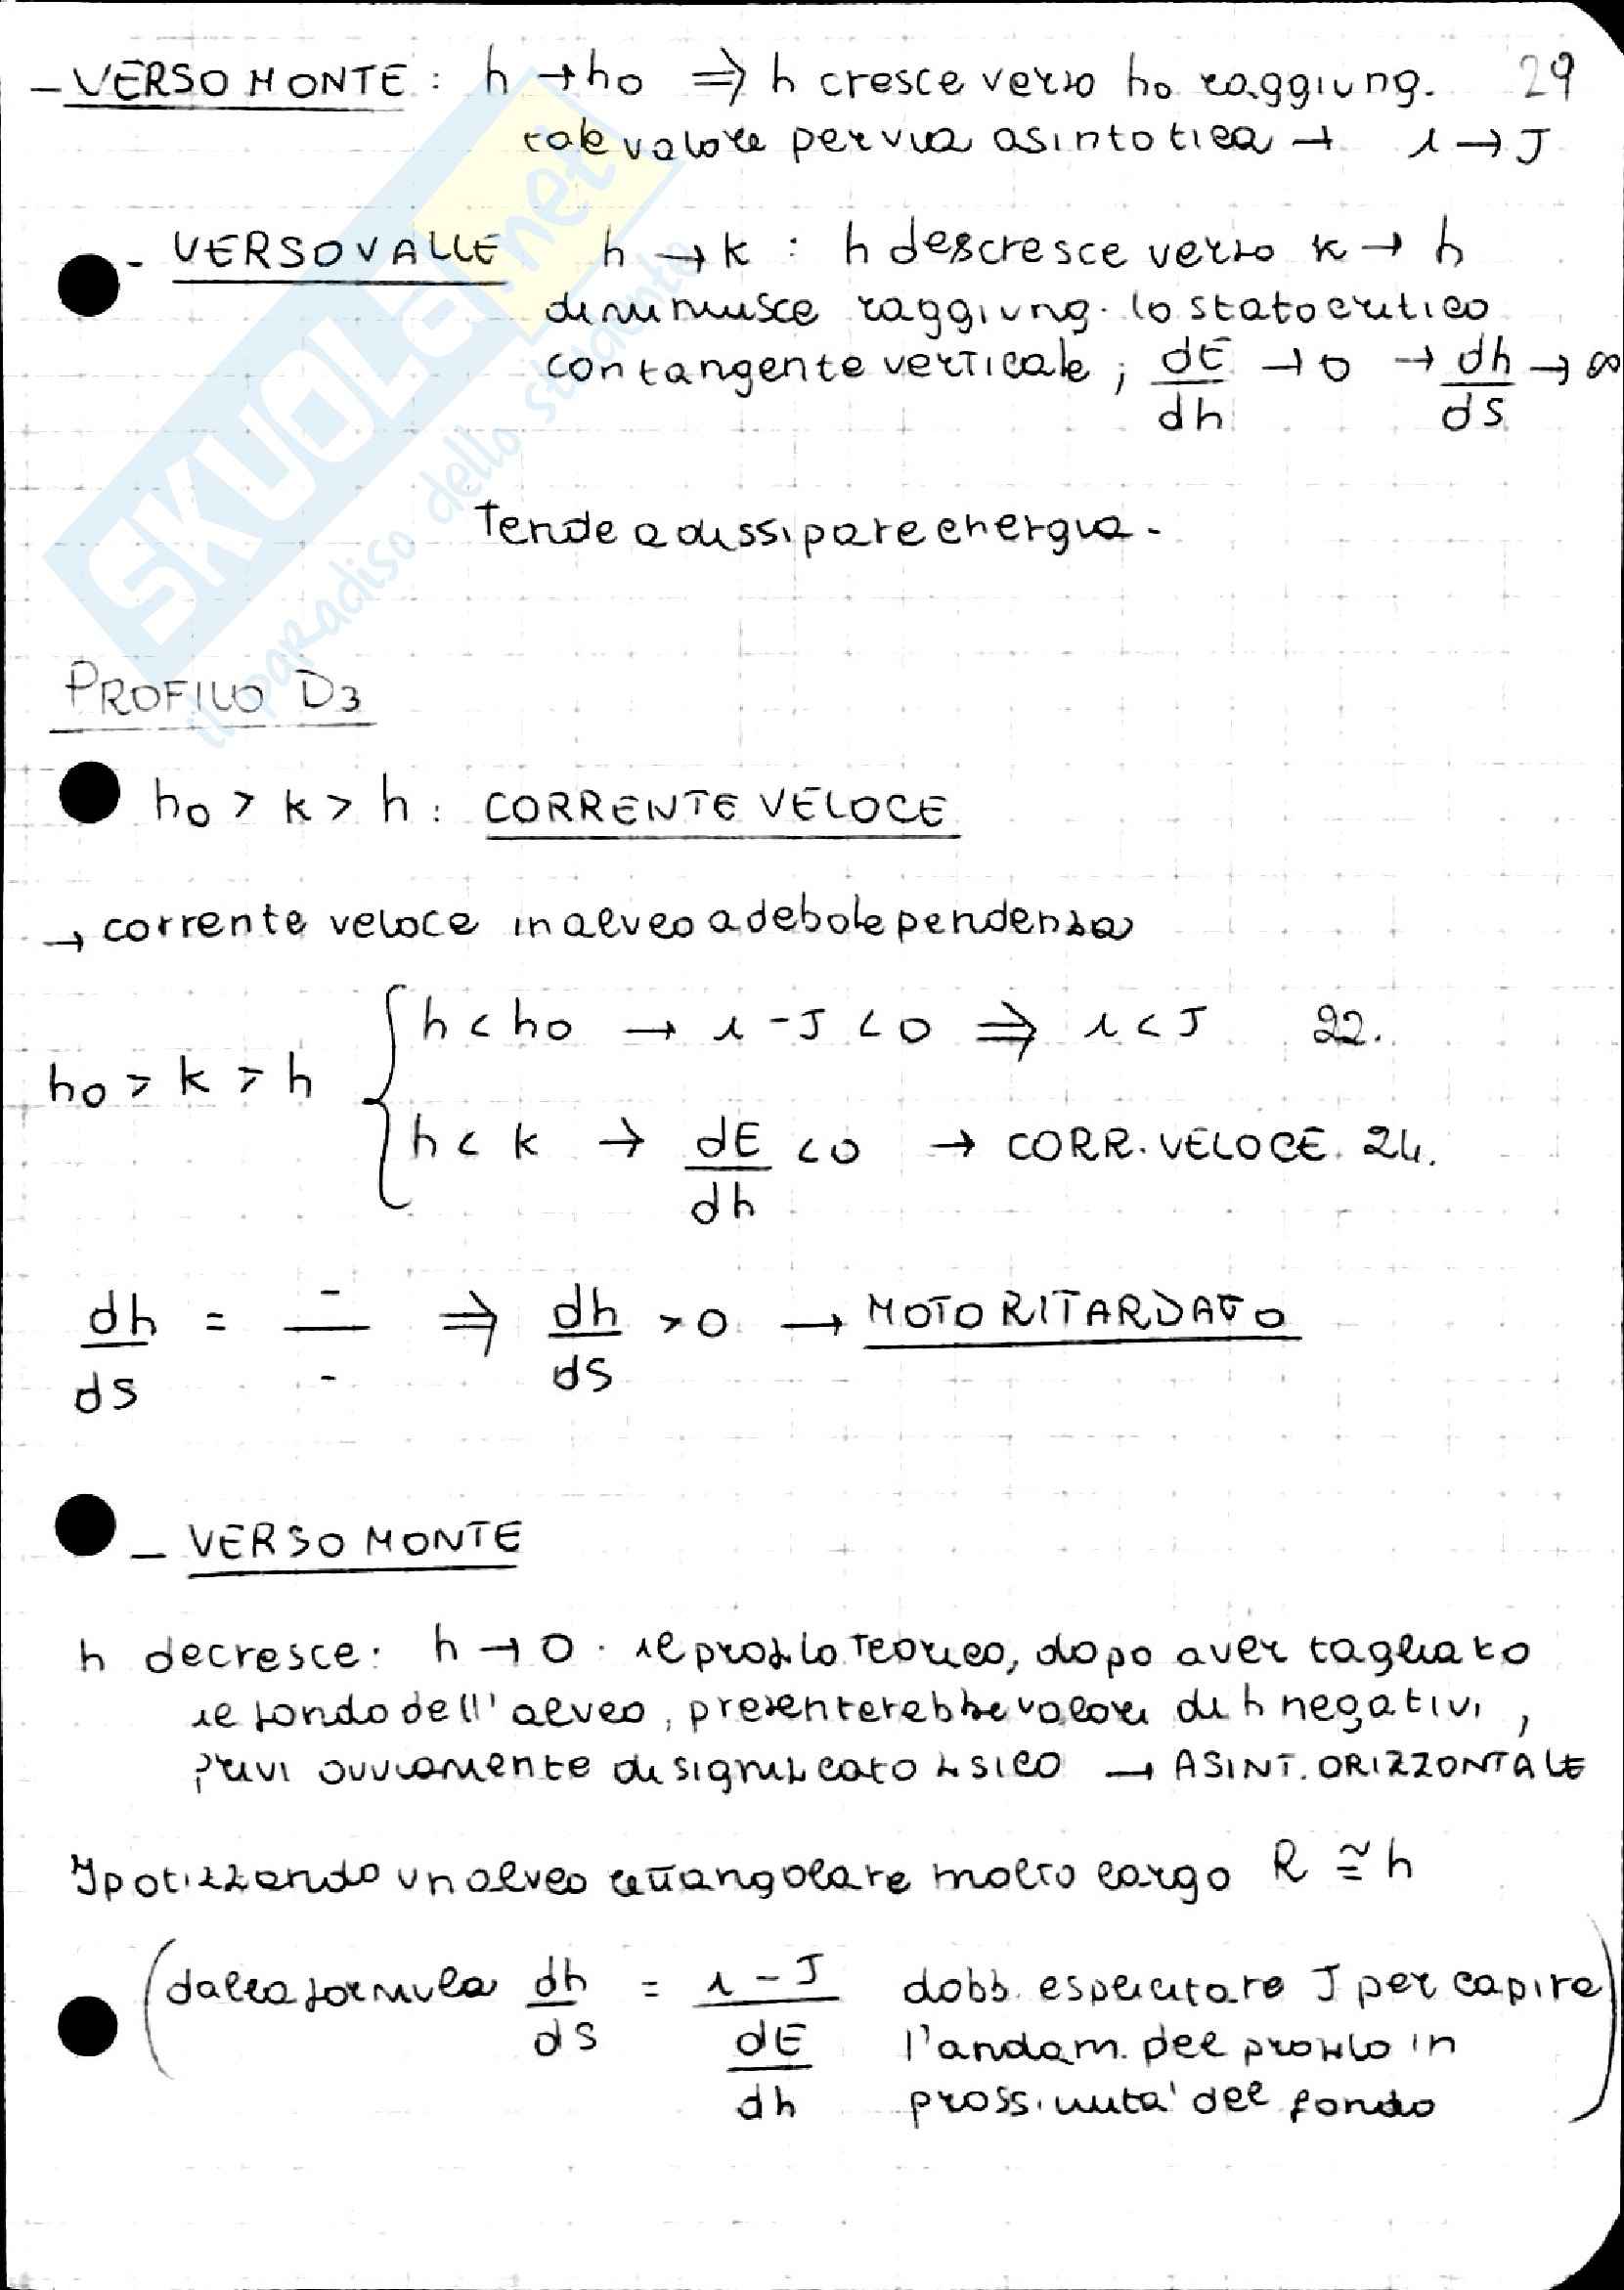 - VERSO MONTE : h → h0 ⇒ h cresce verso h0 raggiung. 29
tale valore per via asintotica → i → J
- VERSO VALLE h → k : h descresce verso k → h
diminuisce raggiung. lo stato critico
con tangente verticale ; dE/dh → 0 → dh/ds → ∞
Tende a dissipare energia -
PROFILO D3
h0 > k > h : CORRENTE VELOCE
→ corrente veloce in alveo a debole pendenza
h0 > k > h { h < h0 → i - J < 0 ⇒ i < J 22.
h < k → dE/dh < 0 → CORR. VELOCE. 24.
dh/ds = -/- ⇒ dh/ds > 0 → MOTO RITARDATO
- VERSO MONTE
h decresce: h → 0. il profilo teorico, dopo aver tagliato
il fondo dell'alveo, presenterebbe valori di h negativi,
privi ovviamente di significato fisico → ASINT. ORIZZONTALE
Ipotizzando un alveo rettangolare molto largo R ≅ h
(dalla formula dh/ds = i - J / dE/dh dobb. esplicitare J per capire
l'andam. del profilo in
prossimità del fondo)
SKUOLA.net
il paradiso dello studente